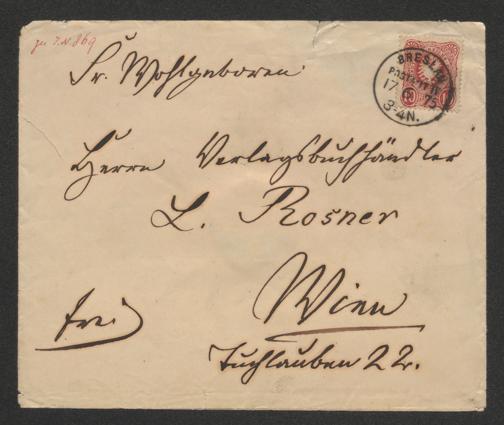 zu I.N. 869
BRESLAU
17 75
3-4N.
Sr. Wohlgeboren
Herrn Verlagsbuchhändler
L. Rosner
Wien
frei
Tuchlauben 22.